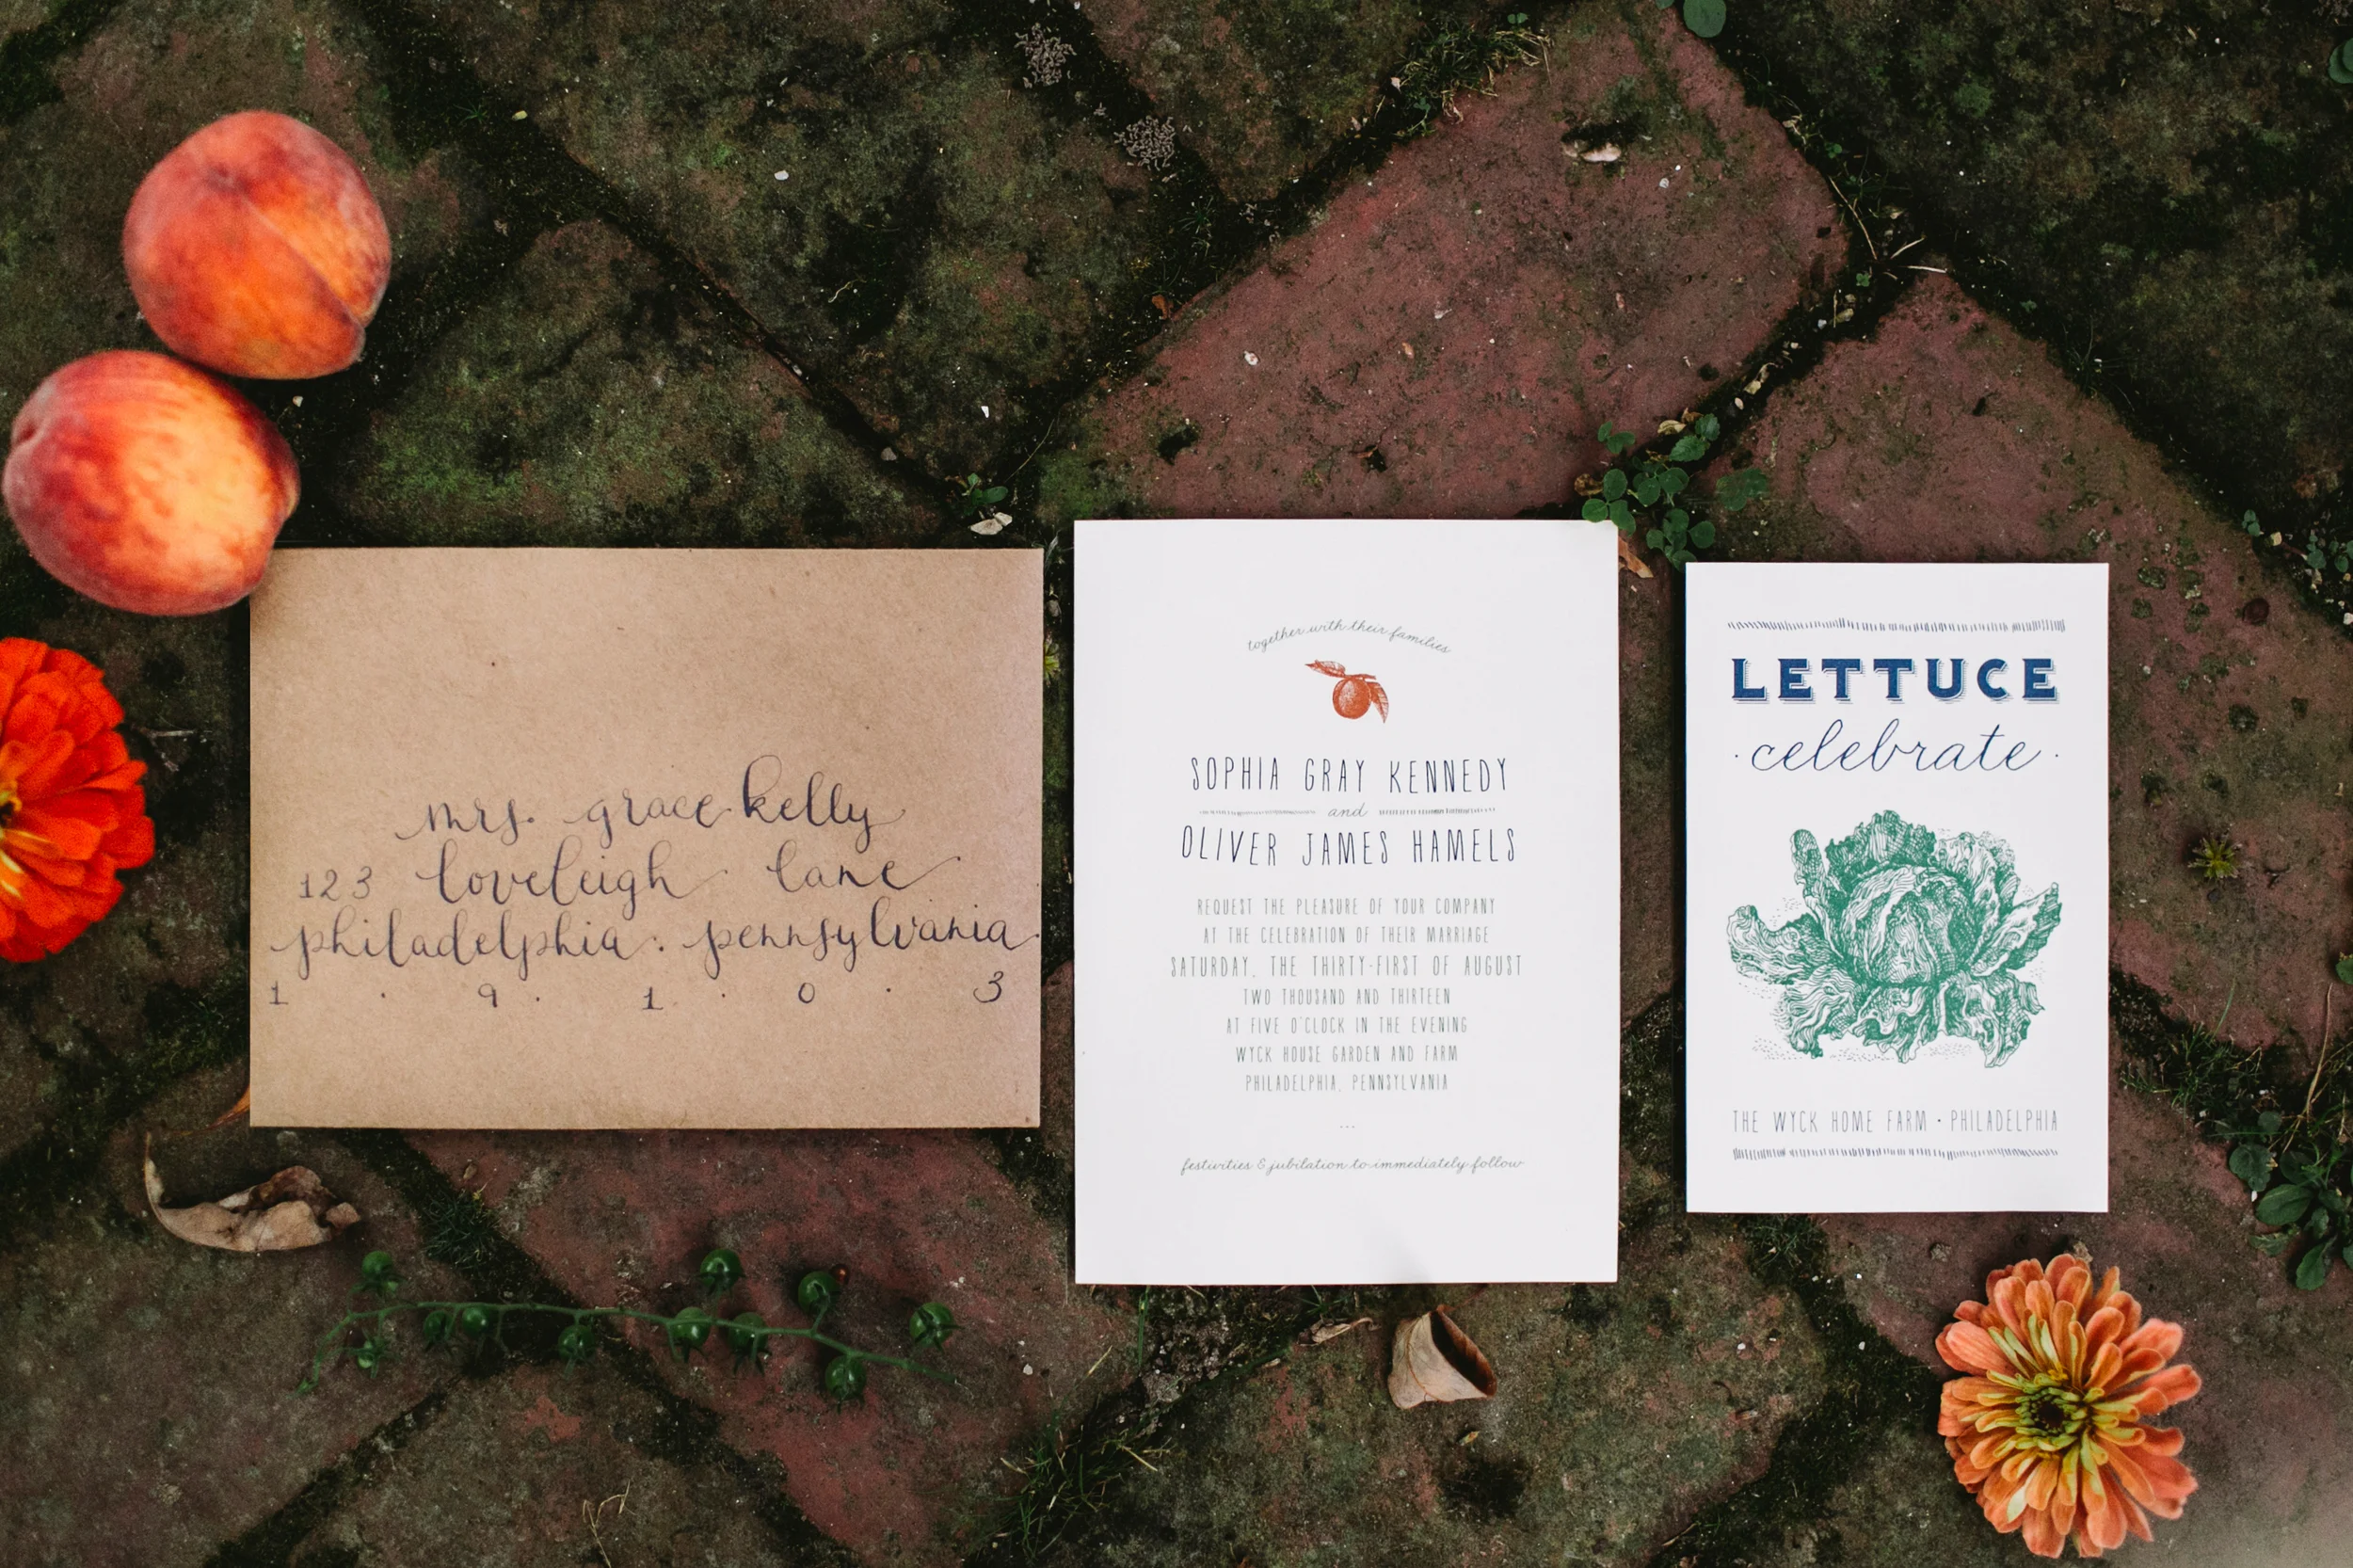 mrs. grace kelly
123 loveleigh lane
philadelphia . pennsylvania
1 . 9 . 1 . 0 . 3
together with their families
SOPHIA GRAY KENNEDY
and
OLIVER JAMES HAMELS
REQUEST THE PLEASURE OF YOUR COMPANY
AT THE CELEBRATION OF THEIR MARRIAGE
SATURDAY, THE THIRTY-FIRST OF AUGUST
TWO THOUSAND AND THIRTEEN
AT FIVE O'CLOCK IN THE EVENING
WYCK HOUSE GARDEN AND FARM
PHILADELPHIA, PENNSYLVANIA
...
festivities & jubilation to immediately follow
LETTUCE
· celebrate ·
THE WYCK HOME FARM · PHILADELPHIA